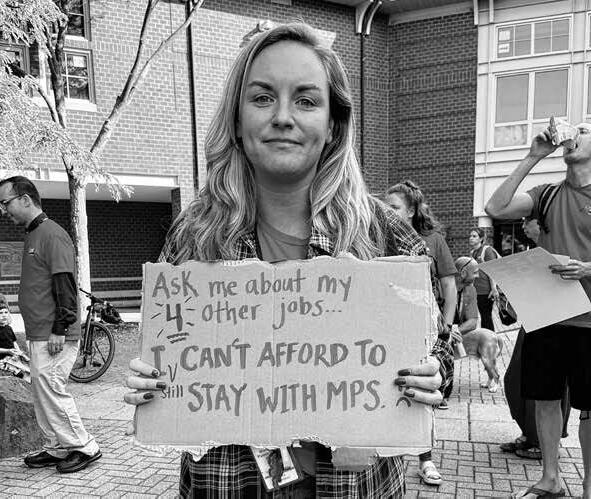 Ask me about my
4 other jobs...
I still CAN'T AFFORD TO
STAY WITH MPS. :(